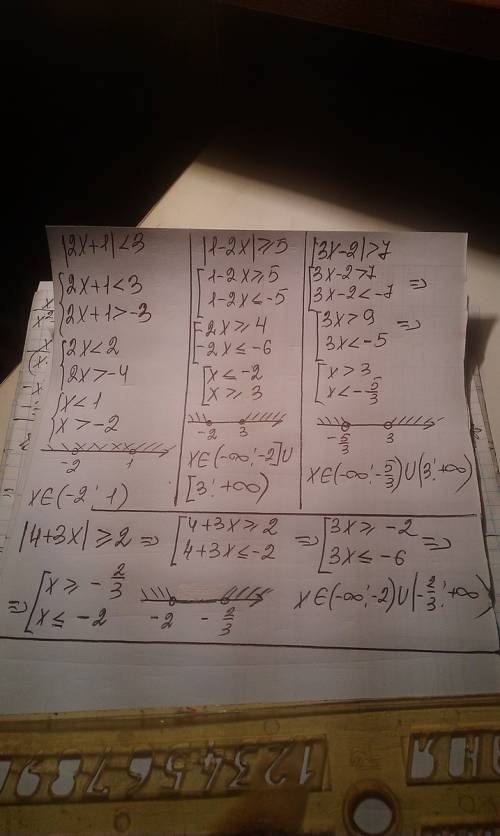 |2x+1|<3
{2x+1<3
2x+1>-3
{2x<2
2x>-4
{x<1
x>-2
-2 1
x∈(-2; 1)
|1-2x|≥5
[1-2x≥5
1-2x≤-5
[-2x≥4
-2x≤-6
[x≤-2
x≥3
-2 3
x∈(-∞;-2]∪
[3;+∞)
|3x-2|>7
[3x-2>7
3x-2<-7 =>
[3x>9
3x<-5 =>
[x>3
x<-5/3
-5/3 3
x∈(-∞;-5/3)∪(3;+∞)
|4+3x|≥2 => [4+3x≥2 => [3x≥-2 =>
4+3x≤-2 3x≤-6
=> [x≥-2/3
x≤-2
-2 -2/3
x∈(-∞;-2)∪(-2/3;+∞)
123456789